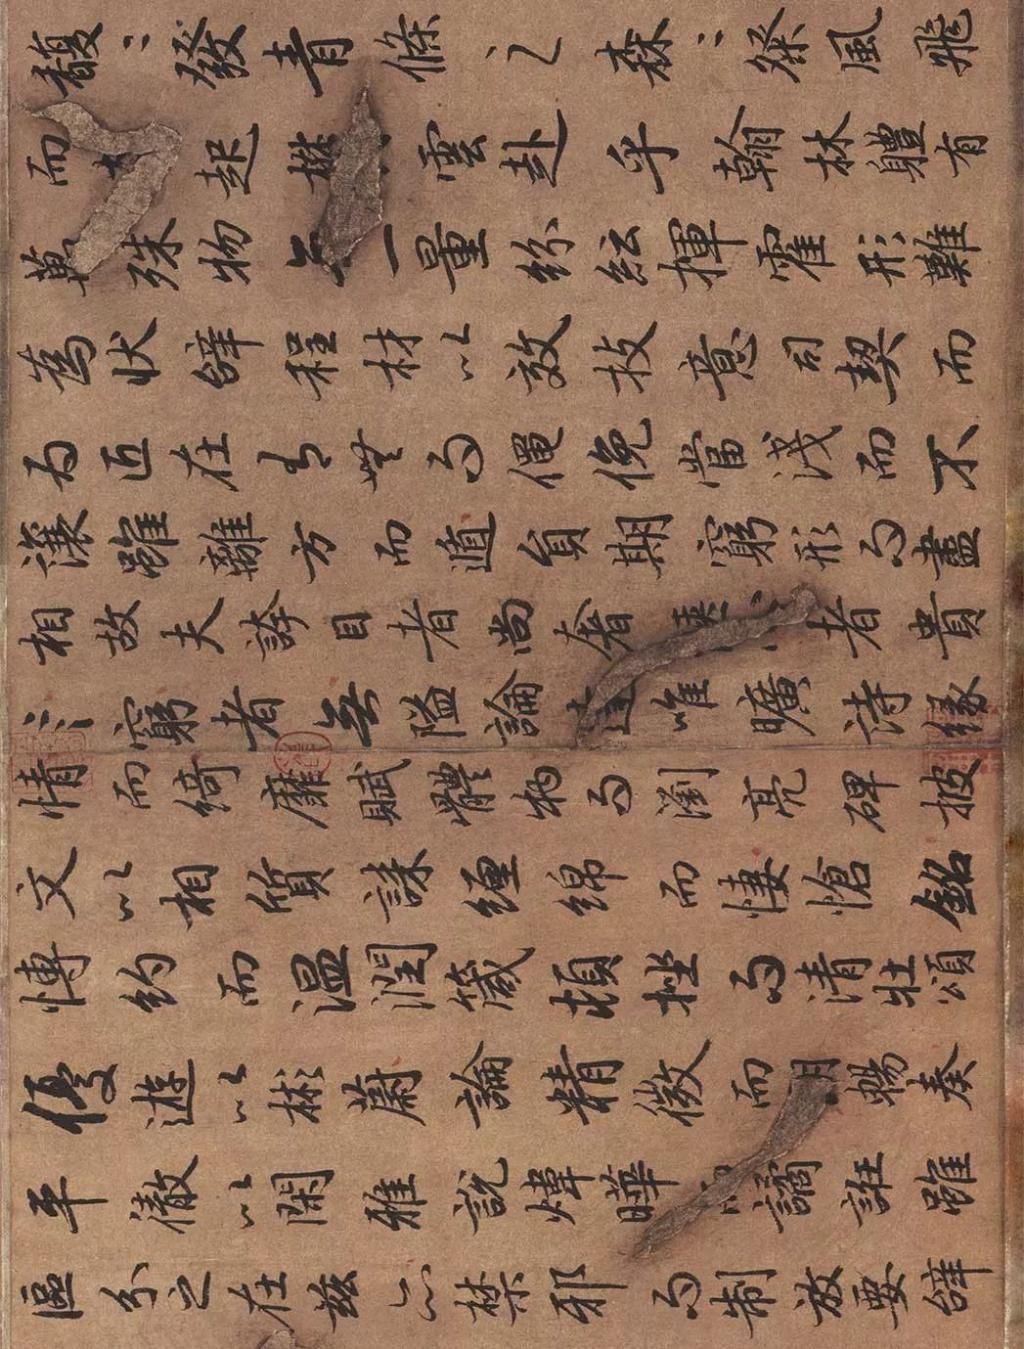 馥〻發青條之森〻粲風飛
而起雲赴乎翰林體有
萬殊物無一量紛紜揮霍形難
為狀辭程材以效技意司契而
為匠在有無而僶俛當淺而不
讓雖離方而遁員期窮形而盡
相故夫誇目者尚奢者貴
窮者無隘論達唯曠詩緣
情而綺靡賦體物而瀏亮碑披
文以相質誄纏綿而悽愴銘
博約而溫潤箴頓挫而清壯頌
優遊以彬蔚論精微而朗暢奏
平徹以閑雅說煒曄譎誑雖
區分之在茲亦禁邪而制放要辭